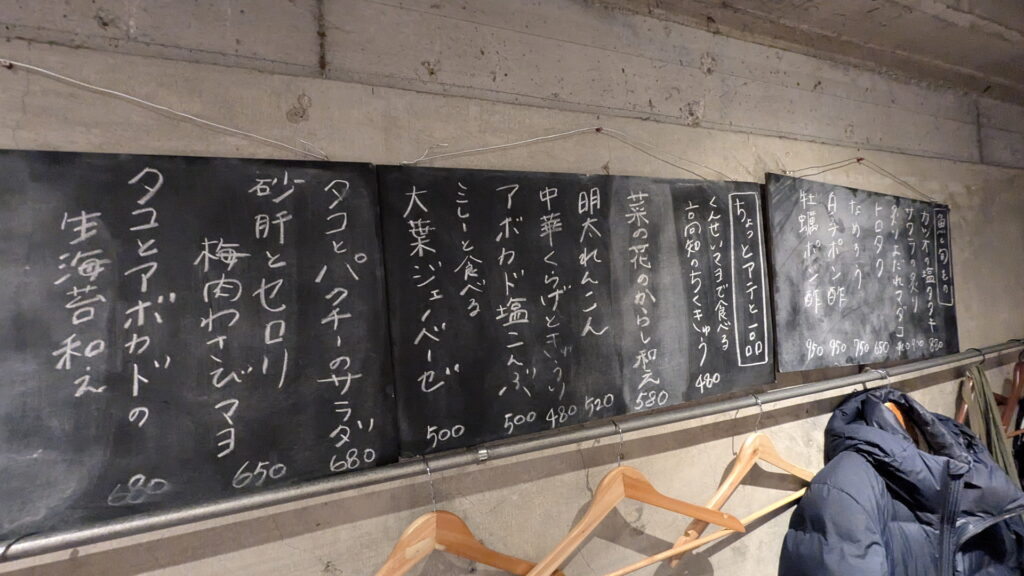 魚と旬もの
カツオの塩タタキ
870
サワラの炙り
トロタク
650
なめろう
750
白子ポン酢
950
牡蠣ポン酢
950
ちょっとアテと一品
くんせいマヨで食べる
高知のちくきゅう
480
菜の花のからし和え
580
明太れんこん
520
中華くらげときゅうり
480
アボカド塩こんぶ
500
こしーと食べる
大葉ジェノベーゼ
500
タコとパクチーのサラダ
680
砂肝とセロリ
梅肉わさびマヨ
650
タコとアボカドの
生海苔和え
680